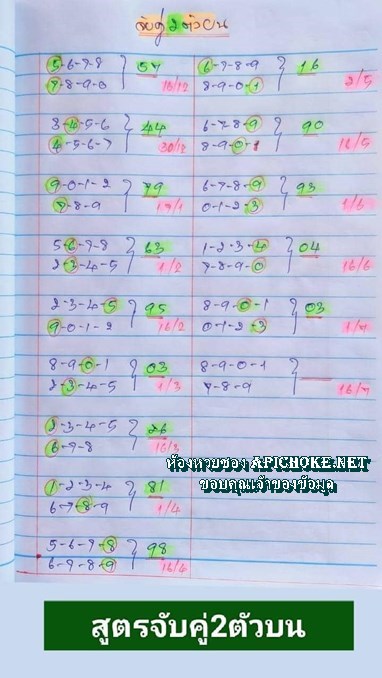 จับคู่ 2 ตัวบน
5-6-7-8
7-8-9-0
57
16/12
3-4-5-6
4-5-6-7
44
30/12
9-0-1-2
7-8-9
79
17/1
5-6-7-8
2-3-4-5
63
1/2
2-3-4-5
9-0-1-2
95
16/2
8-9-0-1
2-3-4-5
03
1/3
2-3-4-5
6-7-8
26
16/3
1-2-3-4
6-7-8-9
81
1/4
5-6-7-8
6-7-8-9
98
16/4
6-7-8-9
8-9-0-1
16
2/5
6-7-8-9
8-9-0-1
90
16/5
6-7-8-9
0-1-2-3
93
1/6
1-2-3-4
7-8-9-0
04
16/6
8-9-0-1
0-1-2-3
03
1/7
8-9-0-1
7-8-9
16/7
ห้องหวยซอง APICHOKE.NET
ขอบคุณเจ้าของข้อมูล
สูตรจับคู่2ตัวบน